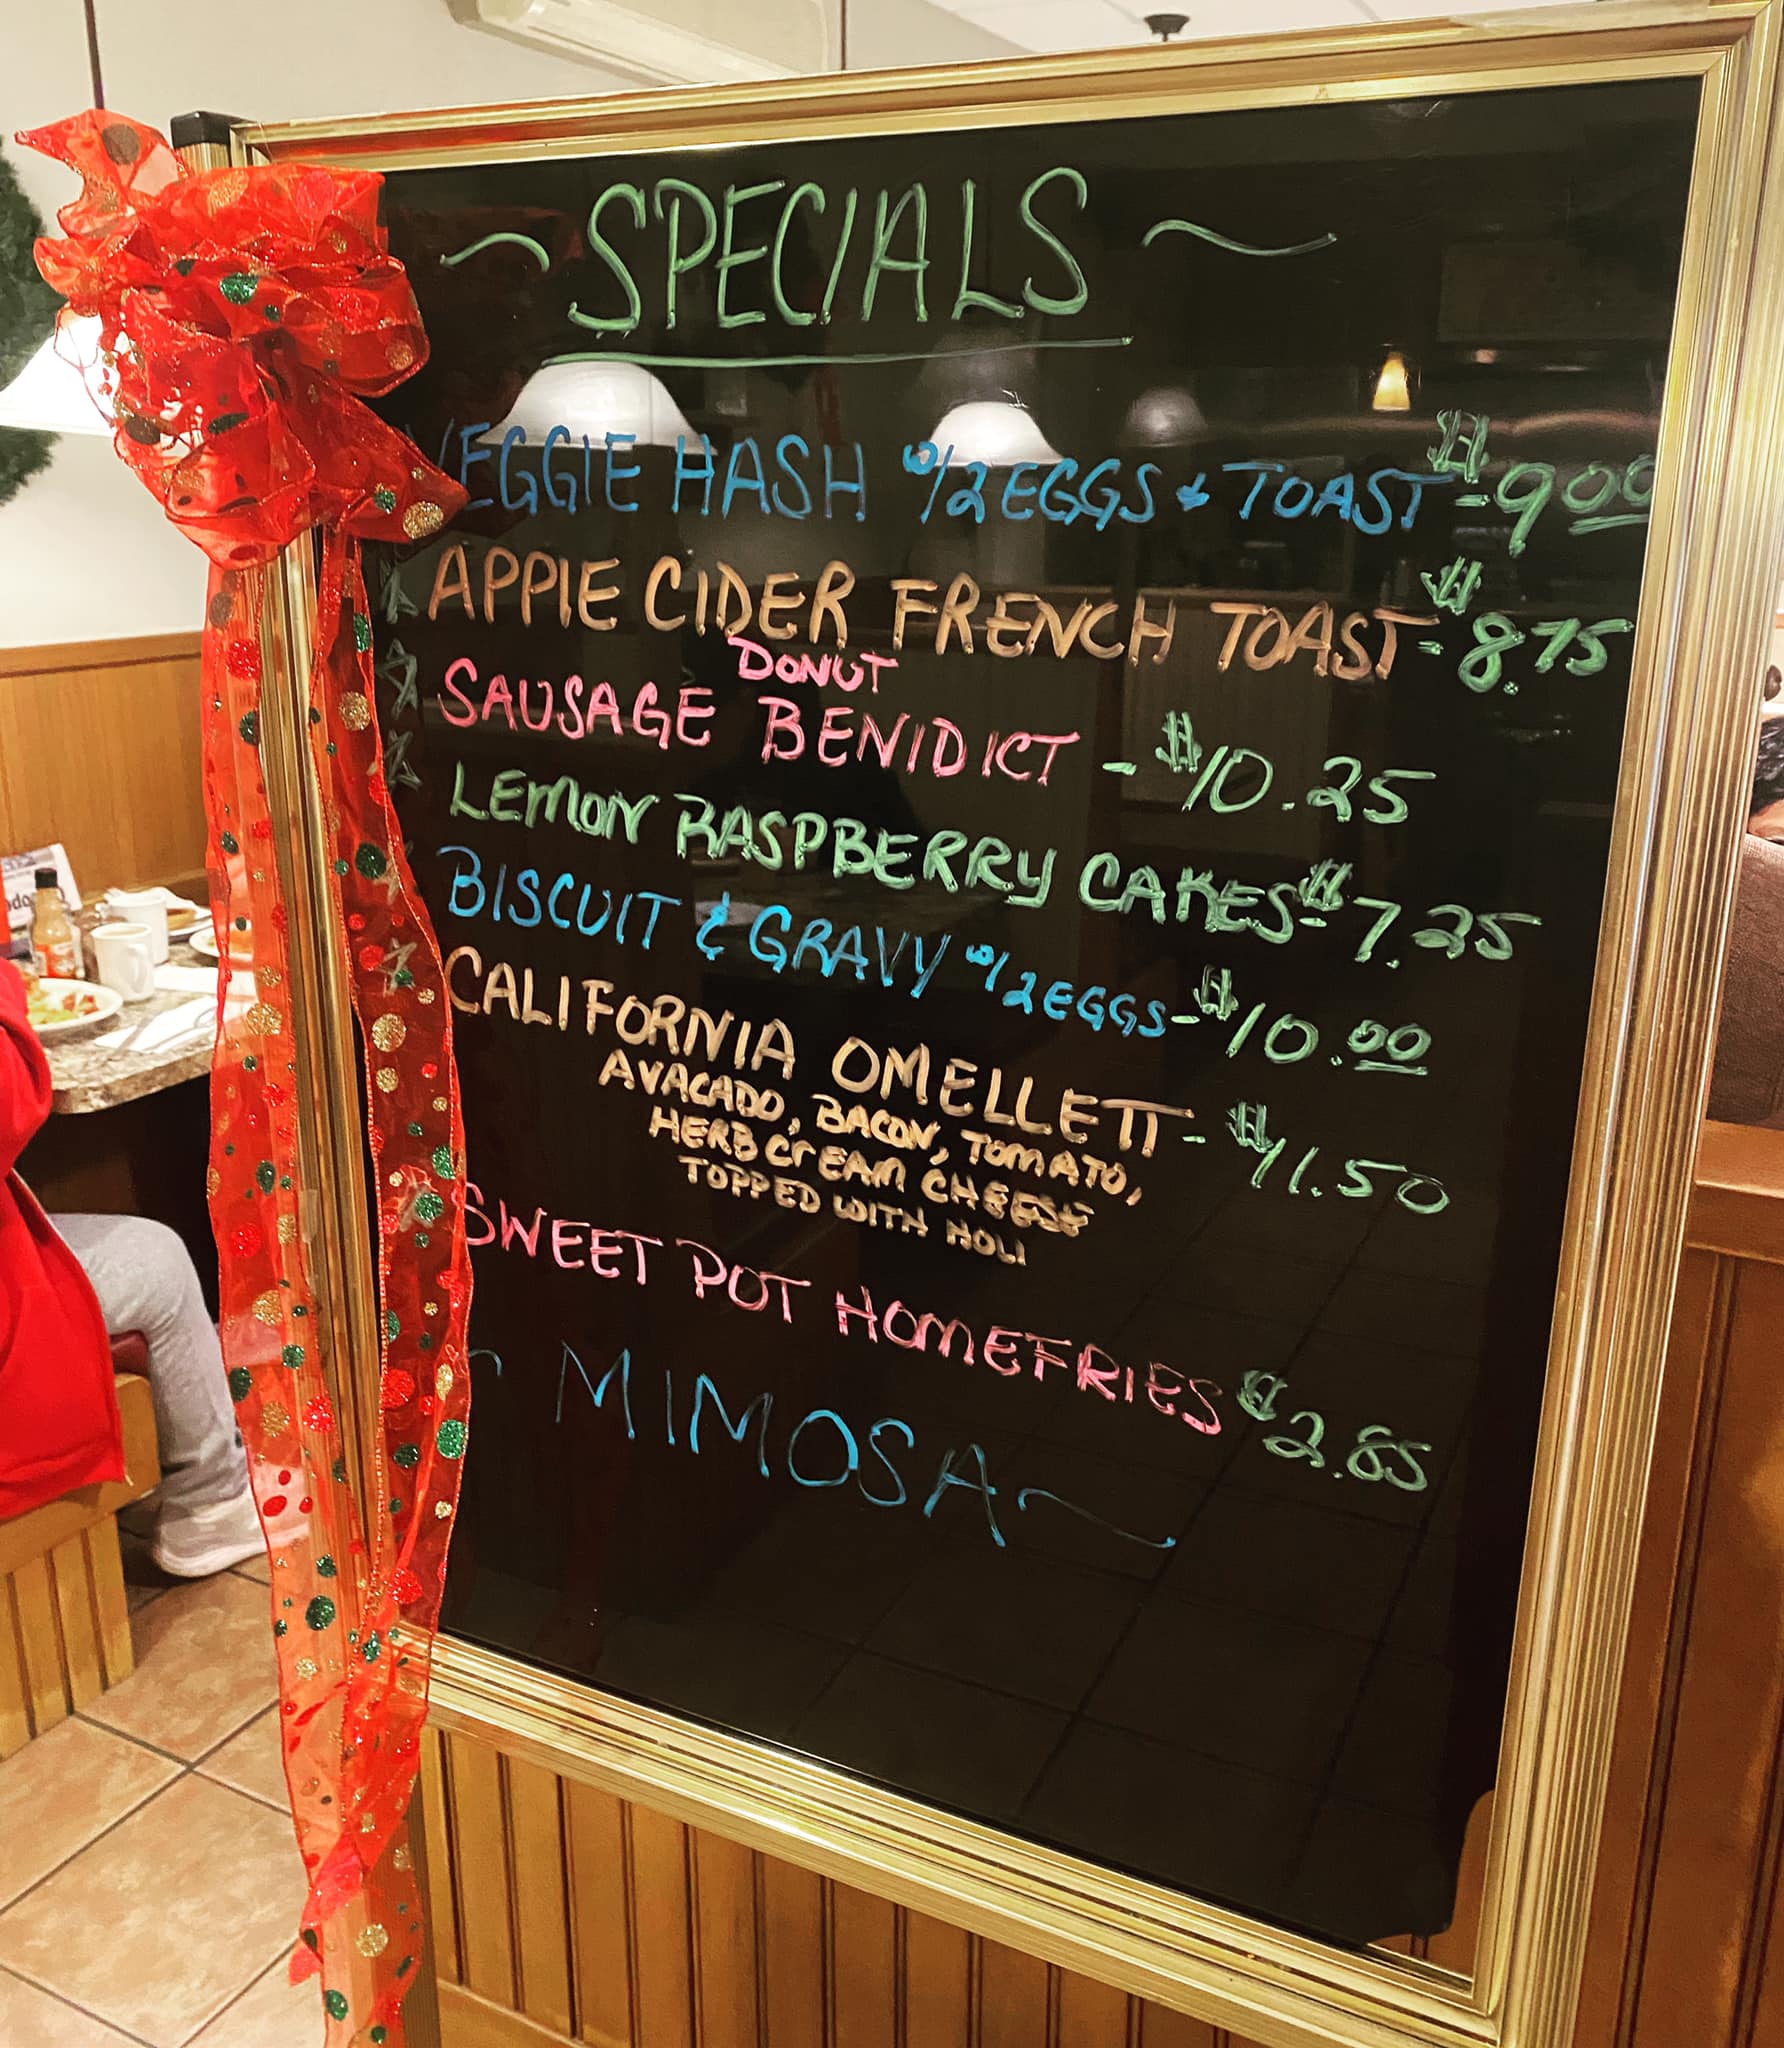 ~ SPECIALS ~
VEGGIE HASH w/2 EGGS & TOAST - $9.00
APPLE CIDER FRENCH TOAST - $8.75
DONUT
SAUSAGE BENIDICT - $10.25
LEMON RASPBERRY CAKES - $7.25
BISCUIT & GRAVY w/2 EGGS - $10.00
CALIFORNIA OMELLETT - $11.50
AVACADO, BACON, TOMATO,
HERB CREAM CHEESE
TOPPED WITH HOLI
SWEET POT HOMEFRIES $2.85
~ MIMOSA ~